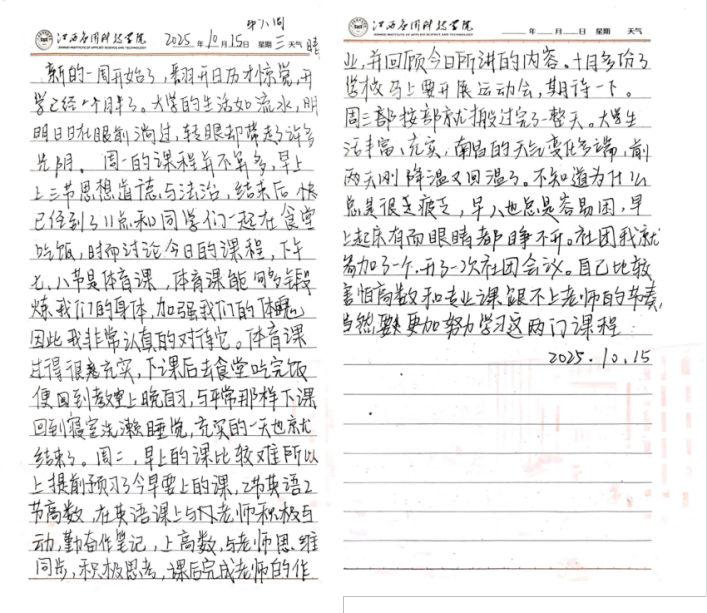 江西应用科技学院
JIANGXI INSTITUTE OF APPLIED SCIENCE AND TECHNOLOGY
第八周
2025年10月15日 星期三 天气 晴
新的一周开始了,翻开日历才惊觉,开
学已经一个月半了。大学的生活如流水,明
明日日在眼前淌过,转眼却带走了许多
光阴。周一的课程并不算多,早上
上三节思想道德与法治,结束后快
已经到了11点和同学们一起在食堂
吃饭,时而讨论今日的课程,下午
七、八节是体育课,体育课能够多锻
炼我们的身体,加强我们的体魄
因此我非常认真的对待它。体育课
过得很充实,下课后去食堂吃完饭
便回到教室上晚自习,与平常那样下课
回到寝室洗漱睡觉,充实的一天也就
结束了。周二,早上的课比较难所以
上提前预习了今早要上的课,2节英语2
节高数,在英语课上与老师积极互
动,勤奋作笔记,上高数,与老师思维
同步,积极思考,课后完成老师的作
江西应用科技学院
JIANGXI INSTITUTE OF APPLIED SCIENCE AND TECHNOLOGY
年 月 日 星期 天气
业,并回顾今日所讲的内容。十月多份了
学校马上要开展运动会,期待一下。
周三都按部就搬过完了一整天。大学生
活丰富、充实,南昌的天气变化多端,前
两天刚降温又回温了。不知道为什么
总是很乏疲乏,早八也总是容易困,早
上起床有而眼睛都睁不开。社团我就
参加了一个,开了一次社团会议。自己比较
害怕高数和专业课跟不上老师的节奏,
当然,要更加努力学习这两门课程
2025.10.15